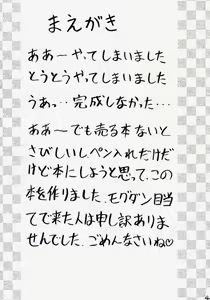 まえがき
ああーやってしまいました
とうとうやってしまいました
うあっ‥完成しなかった…
ああーでも売る本ないと
さびしいしペン入れただけだ
けど本にしようと思って、この
本を作りました、モグダン目当
てで来た人は申し訳ありま
せんでした、ごめんなさいね♡